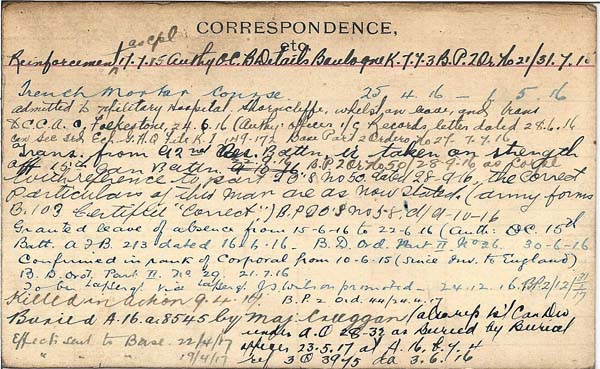 CORRESPONDENCE,
etc.
Reinforcement 17.7.15 Authy O.C. B. Details Boulogne K.7.43 B.P.2 Dr. No 21/31.7.15
Trench Mortar Course 25-4-16 - 1-5-16
admitted to Military Hospital Shorncliffe, whilst on leave, and trans
C.C.A.C. Folkestone, 24.6.16 (Authy: Officer i/c Records letter dated 28.6.16
Can. Sec. 3rd Ech. G.H.Q. File Base Part 2 Orders No 27
Trans. from 92nd Res. Battn. is taken on strength
15th Can Battn. 28-9-16 as Corpl
with reference to part 2 O's No 50 dated 28-9-16, the correct
particulars of this man are as now stated. (army forms
B.103 Certified "Correct") B.P.2 O's No 58, d/9-10-16
Granted leave of absence from 15-6-16 to 22-6-16 (Auth: O.C. 15th
Batt. A.F.B. 213 dated 16.6.16. B.D. Ord. Part II. No 26. 30-6-16
Confirmed in rank of Corporal from 10-6-15 (since trnv. to England)
B.D. Ord. Part II. No 29. 21.7.16
To be L/Sergt. vice L/Sergt. J.S. Wilson promoted 24.12.16. B.P.2/12/
Killed in action 9.4.17. B.P.2 Ord. 44/24.4.17
Buried A.16.a.8545 by Maj. Creeggan
under A.O. 28.32 as Buried by Burial
Effects sent to Base. 22/4/17 officer 23.5.17 at A.16.b.4.4
" " " 19/4/17 3 3945 da 3.6.16